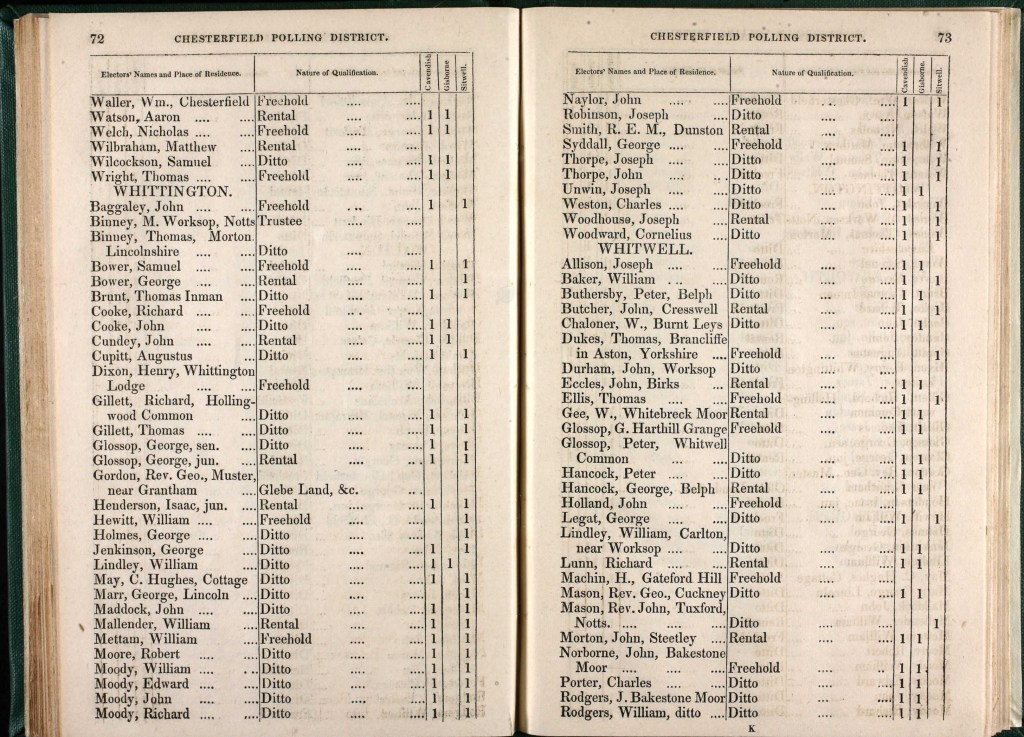 72
CHESTERFIELD POLLING DISTRICT.
Electors' Names and Place of Residence. Nature of Qualification. Cavendish Gisborne. Sitwell.
Waller, Wm., Chesterfield Freehold .... ....
Watson, Aaron .... .... Rental .... .... 1 1
Welch, Nicholas .... .... Freehold .... .... 1 1
Wilbraham, Matthew .... Rental .... ....
Wilcockson, Samuel .... Ditto .... .... 1 1
Wright, Thomas .... .... Freehold .... .... 1 1
WHITTINGTON.
Baggaley, John .... .... Freehold .... .... 1 1
Binney, M. Worksop, Notts Trustee .... ....
Binney, Thomas, Morton
Lincolnshire .... .... Ditto .... ....
Bower, Samuel .... .... Freehold .... .... 1 1
Bower, George .... .... Rental .... .... 1
Brunt, Thomas Inman .... Ditto .... .... 1 1
Cooke, Richard .... .... Freehold .... ....
Cooke, John .... .... Ditto .... .... 1 1
Cundey, John .... .... Rental .... .... 1 1
Cupitt, Augustus ... Ditto .... .... 1 1
Dixon, Henry, Whittington
Lodge .... .... Freehold .... ....
Gillett, Richard, Holling-
wood Common .... Ditto .... .... 1 1
Gillett, Thomas .... .... Ditto .... .... 1 1
Glossop, George, sen. .... Ditto .... .... 1 1
Glossop, George, jun. .... Rental .... .. . 1 1
Gordon, Rev. Geo., Muster,
near Grantham .... Glebe Land, &c. .. .
Henderson, Isaac, jun. .... Rental .... .... 1 1
Hewitt, William .... .... Freehold .... .... 1
Holmes, George .... .... Ditto .... .... 1
Jenkinson, George .... Ditto .... .... 1 1
Lindley, William .... Ditto .... .... 1 1
May, C. Hughes, Cottage Ditto .... .... 1 1
Marr, George, Lincoln .... Ditto .... .... 1
Maddock, John .... .... Ditto .... .... 1 1
Mallender, William .... Rental .... .... 1 1
Mettam, William .... Freehold .... .... 1 1
Moore, Robert .... .... Ditto .... .... 1 1
Moody, William .... Ditto .... .... 1 1
Moody, Edward .... .... Ditto .... .... 1 1
Moody, John .... .... Ditto .... .... 1 1
Moody, Richard .... .... Ditto .... .... 1 1
CHESTERFIELD POLLING DISTRICT.
73
Electors' Names and Place of Residence. Nature of Qualification. Cavendish Gisborne. Sitwell.
Naylor, John .... .... Freehold .... .... 1 1
Robinson, Joseph .... Ditto .... ....
Smith, R. E. M., Dunston Rental .... ....
Syddall, George .... .... Freehold .... .... 1 1
Thorpe, Joseph .... .... Ditto .... .... 1 1
Thorpe, John .... .. . Ditto .... .... 1 1
Unwin, Joseph .... .... Ditto .... .... 1 1
Weston, Charles .... .... Ditto .... .... 1 1
Woodhouse, Joseph .... Rental .... .... 1 1
Woodward, Cornelius .... Ditto .... .... 1 1
WHITWELL.
Allison, Joseph .... .... Freehold .... .... 1 1
Baker, William .. .. .... Ditto .... .... 1 1
Buthersby, Peter, Belph Ditto .... .... 1 1
Butcher, John, Cresswell Rental .... .... 1 1
Chaloner, W., Burnt Leys Ditto .... .... 1 1
Dukes, Thomas, Brancliffe
in Aston, Yorkshire .... Freehold .... .... 1
Durham, John, Worksop Ditto .... ....
Eccles, John, Birks .... Rental .... .... 1 1
Ellis, Thomas .... .... Freehold .... .... 1 1
Gee, W., Whitebreck Moor Rental .... .... 1 1
Glossop, G. Harthill Grange Freehold .... .... 1 1
Glossop, Peter, Whitwell
Common .... .... Ditto .... .... 1 1
Hancock, Peter .... Ditto .... .... 1 1
Hancock, George, Belph Rental .... .... 1 1
Holland, John .... .... Freehold .... ....
Legat, George .... .... Ditto .... .... 1 1
Lindley, William, Carlton,
near Worksop .... .... Ditto .... .... 1 1
Lunn, Richard .... .... Rental .... .... 1 1
Machin, H., Gateford Hill Freehold .... ....
Mason, Rev. Geo., Cuckney Ditto .... .... 1 1
Mason, Rev. John, Tuxford,
Notts. .... .... .... Ditto .... .... 1
Morton, John, Steetley .... Rental .... .... 1 1
Norborne, John, Bakestone
Moor .... .... .... Freehold .... .... 1 1
Porter, Charles .... .... Ditto .... .... 1 1
Rodgers, J. Bakestone Moor Ditto .... .... 1 1
Rodgers, William, ditto .... Ditto .... .... 1 1
K